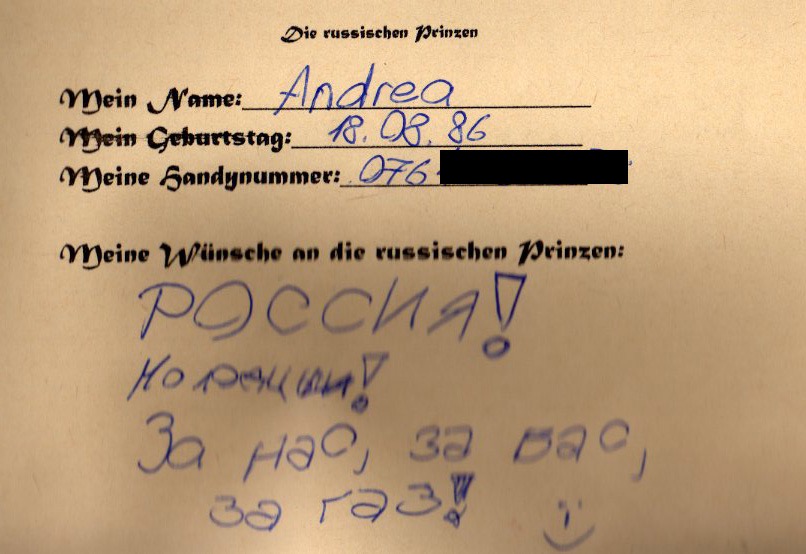 Die russischen Prinzen
Mein Name: Andrea
Mein Geburtstag: 18.08.86
Meine Handynummer: 076
Meine Wünsche an die russischen Prinzen:
РОССИЯ!
За нас, за вас,
за газ!